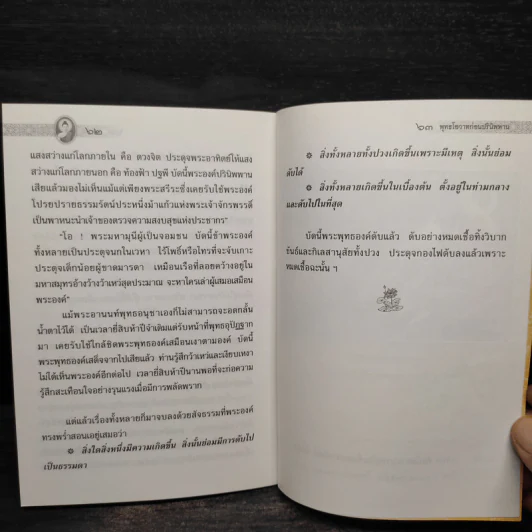 ๖๒
แสงสว่างแก่โลกภายใน คือ ดวงจิต ประดุจพระอาทิตย์ให้แสง
สว่างแก่โลกภายนอก คือ ท้องฟ้า ปฐพี บัดนี้พระองค์ปรินิพพาน
เสียแล้วมองไม่เห็นแม้แต่เพียงพระสรีระซึ่งเคยรับใช้พระองค์
โปรยปรายธรรมรัตน์ประหนึ่งม้าแก้วแห่งพระเจ้าจักรพรรดิ์
เป็นพาหนะนำเจ้าของตรวจความสงบสุขแห่งประชากร"
"โอ ! พระมหามุนีผู้เป็นจอมชน บัดนี้ข้าพระองค์
ทั้งหลายเป็นประดุจนกในเวหา ไร้โพธิ์หรือไทรที่จะจับเกาะ
ประดุจเด็กน้อยผู้ขาดมารดา เหมือนเรือที่ลอยคว้างอยู่ใน
มหาสมุทรอ้างว้างว้าเหว่สุดประมาณ จะหาใครเล่าผู้เสมอเสมือน
พระองค์"
แม้พระอานนท์พุทธอนุชาเองก็ไม่สามารถจะอดกลั้น
น้ำตาไว้ได้ เป็นเวลายี่สิบห้าปีจำเดิมแต่รับหน้าที่พุทธอุปัฏฐาก
มา เคยรับใช้ใกล้ชิดพระพุทธองค์เสมือนเงาตามองค์ บัดนี้
พระพุทธองค์เสด็จจากไปเสียแล้ว ท่านรู้สึกว้าเหว่และเงียบเหงา
ไม่ได้เห็นพระองค์อีกต่อไป เวลายี่สิบห้าปีนานพอที่จะก่อความ
รู้สึกสะเทือนใจอย่างรุนแรงเมื่อมีการพลัดพราก
แต่แล้วเรื่องทั้งหลายก็มาจบลงด้วยสัจธรรมที่พระองค์
ทรงพร่ำสอนอยู่เสมอว่า
สิ่งใดสิ่งหนึ่งมีความเกิดขึ้น สิ่งนั้นย่อมมีการดับไป
เป็นธรรมดา
๖๓ พุทธโอวาทก่อนปรินิพพาน
สิ่งทั้งหลายทั้งปวงเกิดขึ้นเพราะมีเหตุ สิ่งนั้นย่อม
ดับได้
สิ่งทั้งหลายเกิดขึ้นในเบื้องต้น ตั้งอยู่ในท่ามกลาง
และดับไปในที่สุด
บัดนี้พระพุทธองค์ดับแล้ว ดับอย่างหมดเชื้อทิ้งวิบาก
ขันธ์และกิเลสานุสัยทั้งปวง ประดุจกองไฟดับลงแล้วเพราะ
หมดเชื้อฉะนั้น ฯ